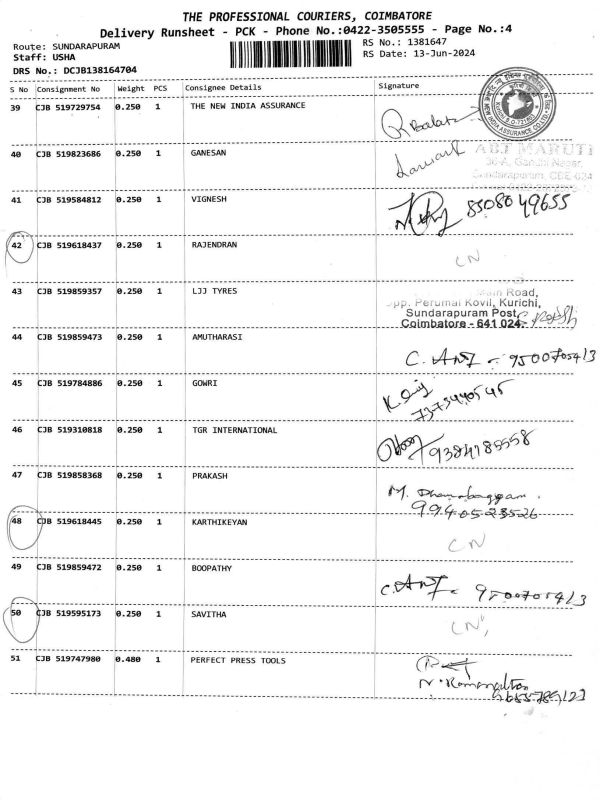 THE PROFESSIONAL COURIERS, COIMBATORE
Delivery Runsheet - PCK - Phone No.:0422-3505555 - Page No.:4
Route: SUNDARAPURAM RS No.: 1381647
Staff: USHA RS Date: 13-Jun-2024
DRS No.: DCJB138164704
S No Consignment No Weight PCS Consignee Details Signature
39 CJB 519729754 0.250 1 THE NEW INDIA ASSURANCE
40 CJB 519823686 0.250 1 GANESAN
ABT MARUTI
36-A, Gandhi Nagar,
Sundarapuram, CBE-624
41 CJB 519584812 0.250 1 VIGNESH 8508049655
42 CJB 519618437 0.250 1 RAJENDRAN CN
43 CJB 519859357 0.250 1 LJJ TYRES
Main Road,
Opp. Perumal Kovil, Kurichi,
Sundarapuram Post,
Coimbatore - 641 024.
44 CJB 519859473 0.250 1 AMUTHARASI
C. 9500705413
45 CJB 519784886 0.250 1 GOWRI
7373440545
46 CJB 519310818 0.250 1 TGR INTERNATIONAL
9384785558
47 CJB 519858368 0.250 1 PRAKASH
M. Dhanabaggyam.
9940523526
48 CJB 519618445 0.250 1 KARTHIKEYAN
CN
49 CJB 519859472 0.250 1 BOOPATHY
C. 9500705413
50 CJB 519595173 0.250 1 SAVITHA
CN
51 CJB 519747980 0.480 1 PERFECT PRESS TOOLS